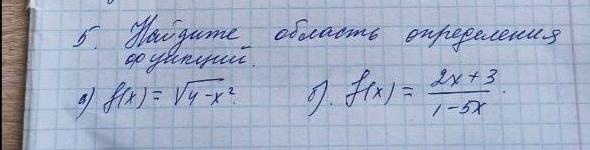 5. Найдите область определения
функций.
а) f(x) = √4-x². б). f(x) = (2x+3)/(1-5x).